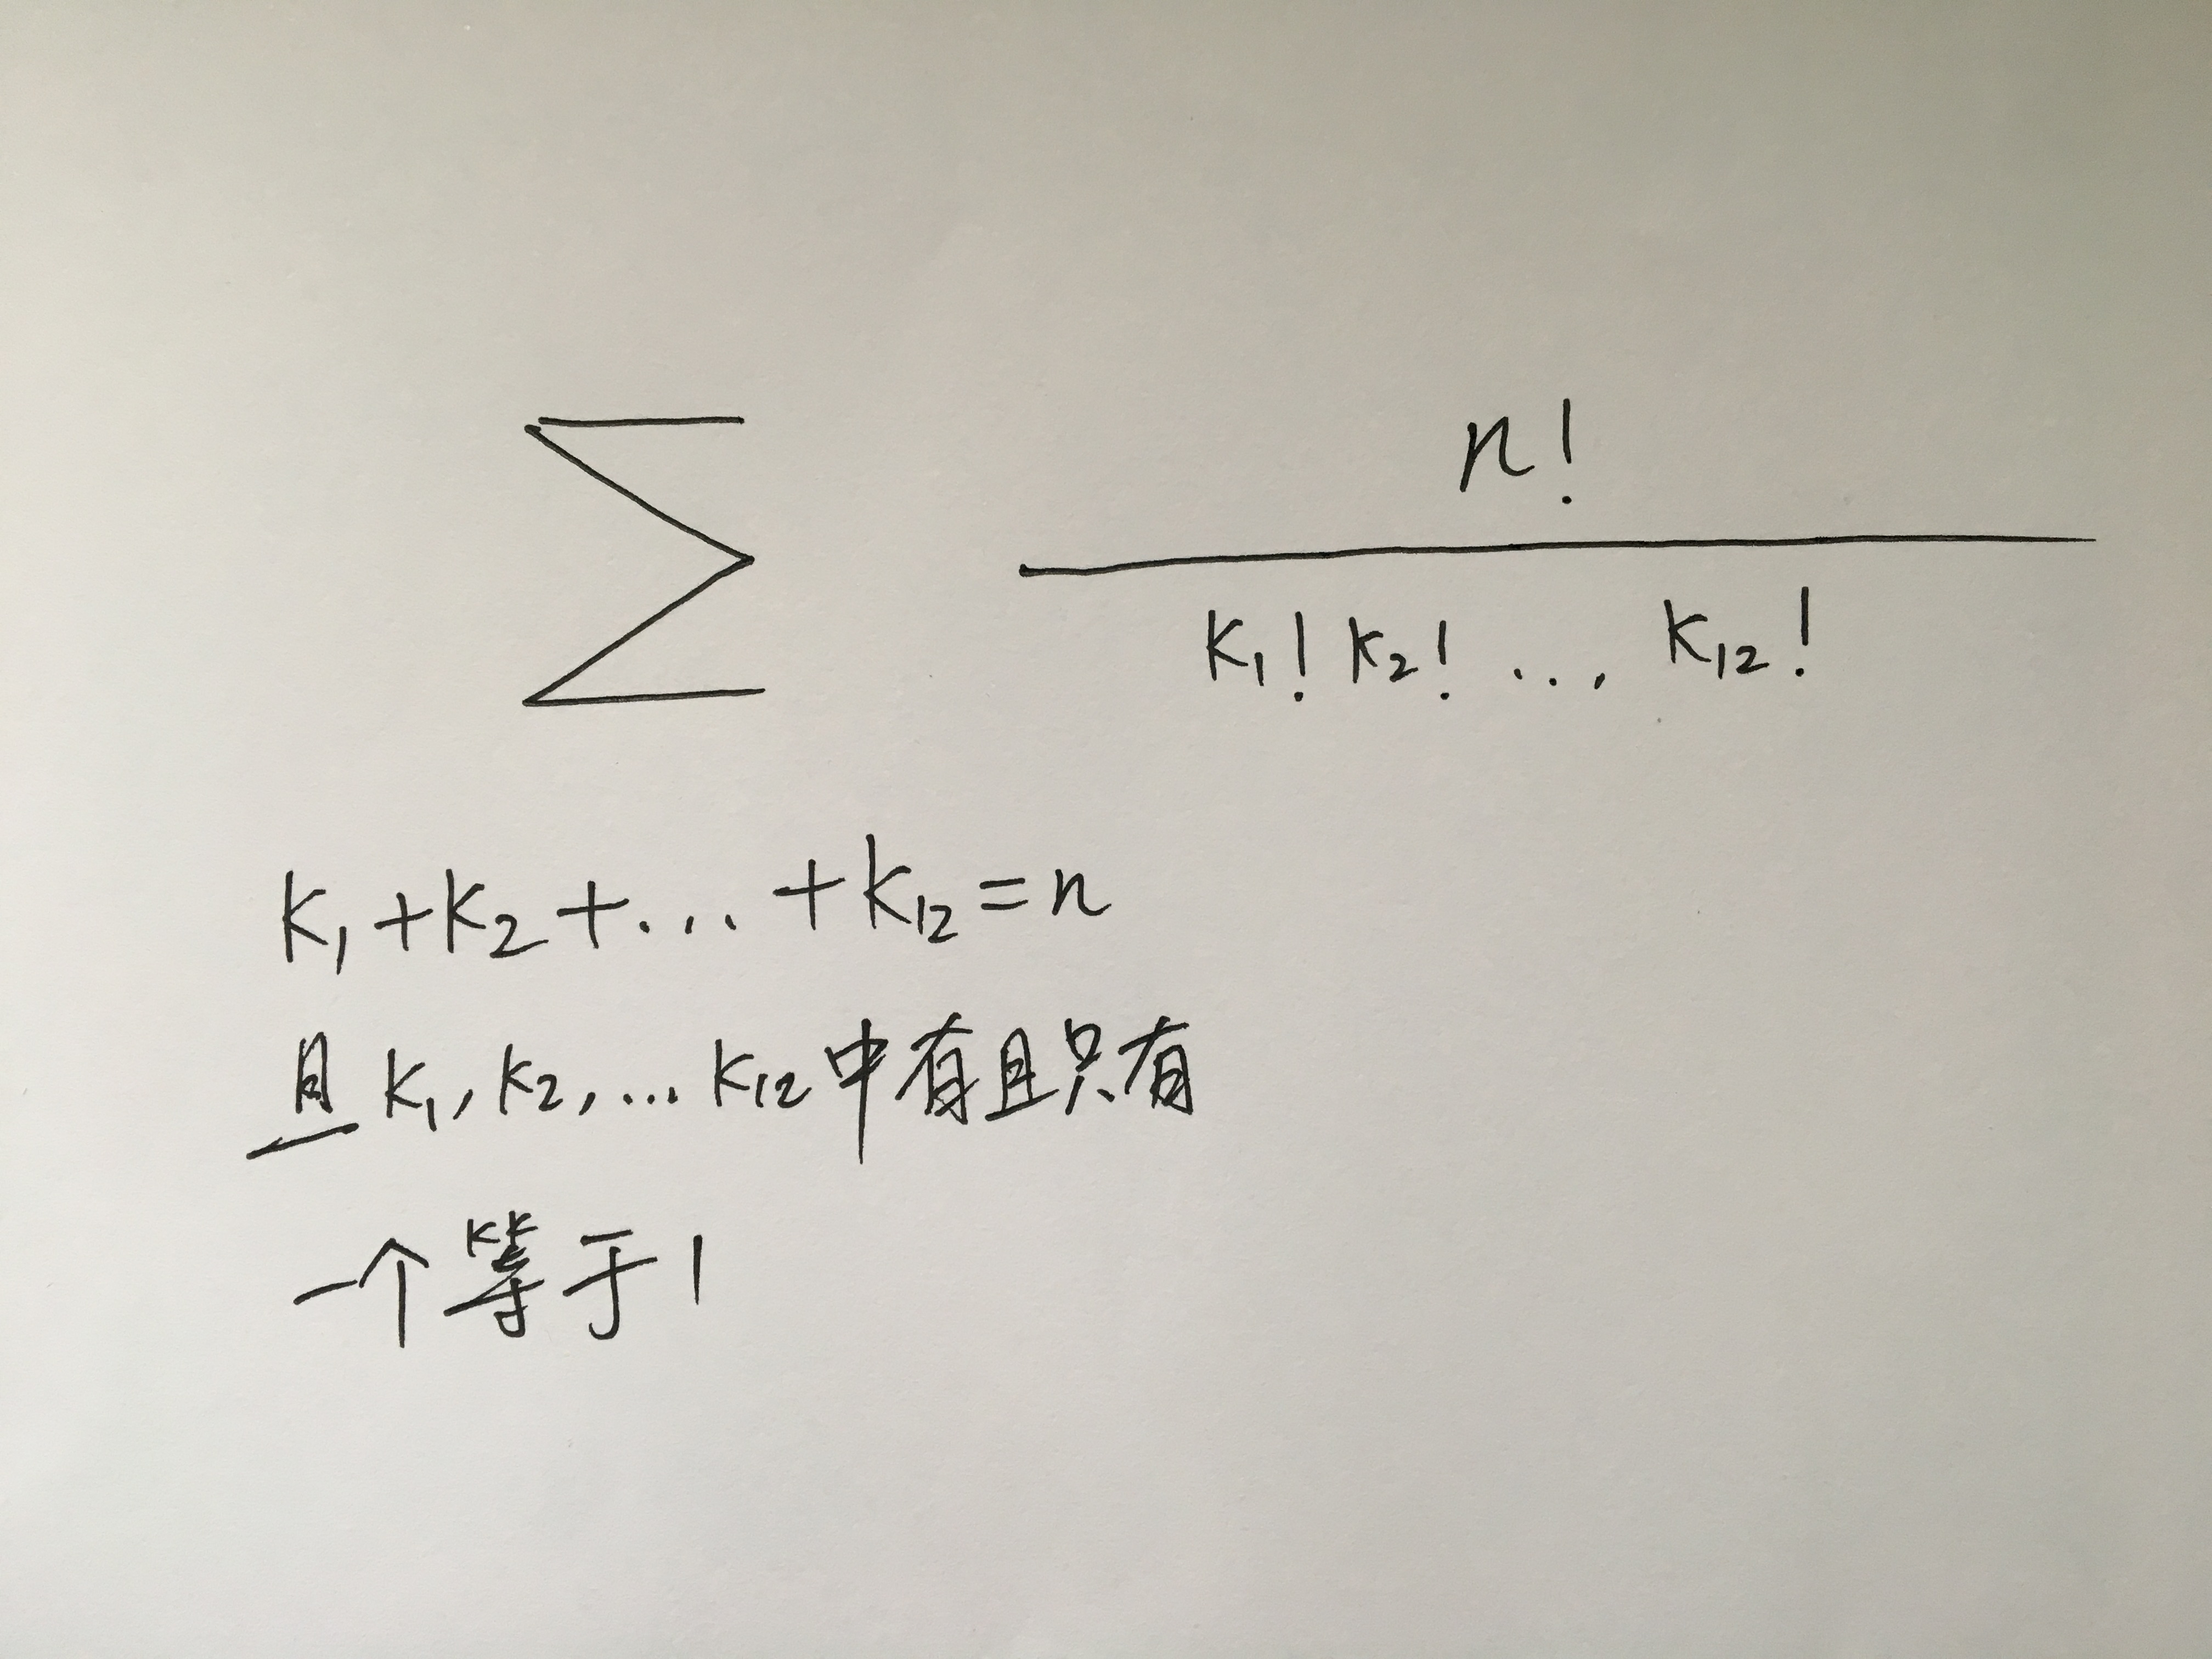 ∑ n! / K₁! K₂! ... K₁₂!
K₁+K₂+...+K₁₂=n
且 K₁, K₂, ... K₁₂中有且只有
一个等于1